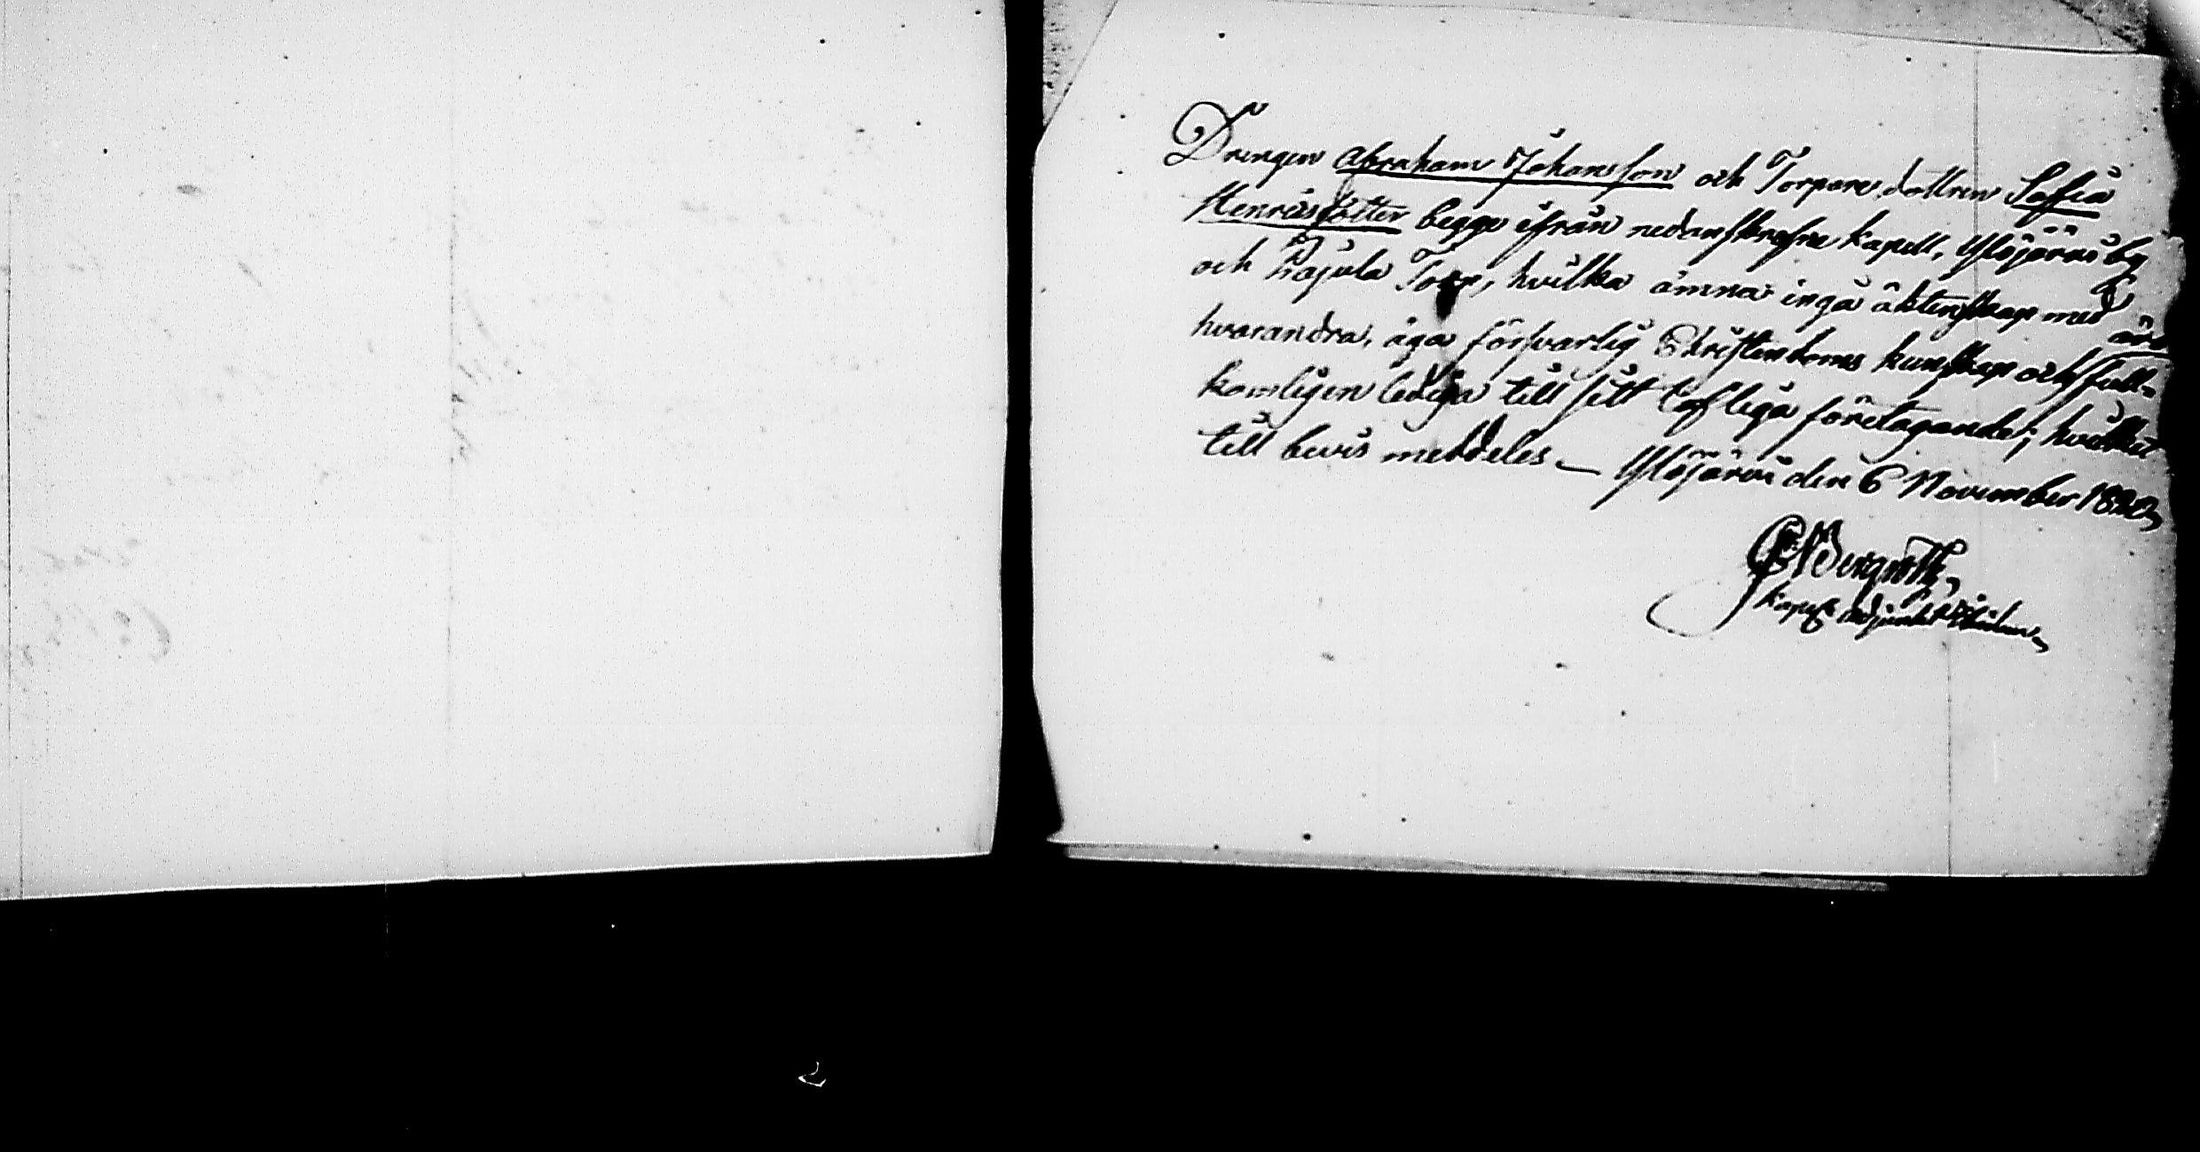 Drengen Abraham Johansson och Torpare dottren Soffia
Henricsdotter begge ifrån nedanskrefne kapell, Ylöjärvi by
och Pajula Torp, hvilka ämna ingå äktenskap med
hvarandra, äga försvarlig Christendoms kunskap och äro full-
komligen lediga till sitt lofliga företagande; hvilket
till bevis meddeles — Ylöjärvi den 6 November 1820
Bergroth
Kapells adjunct